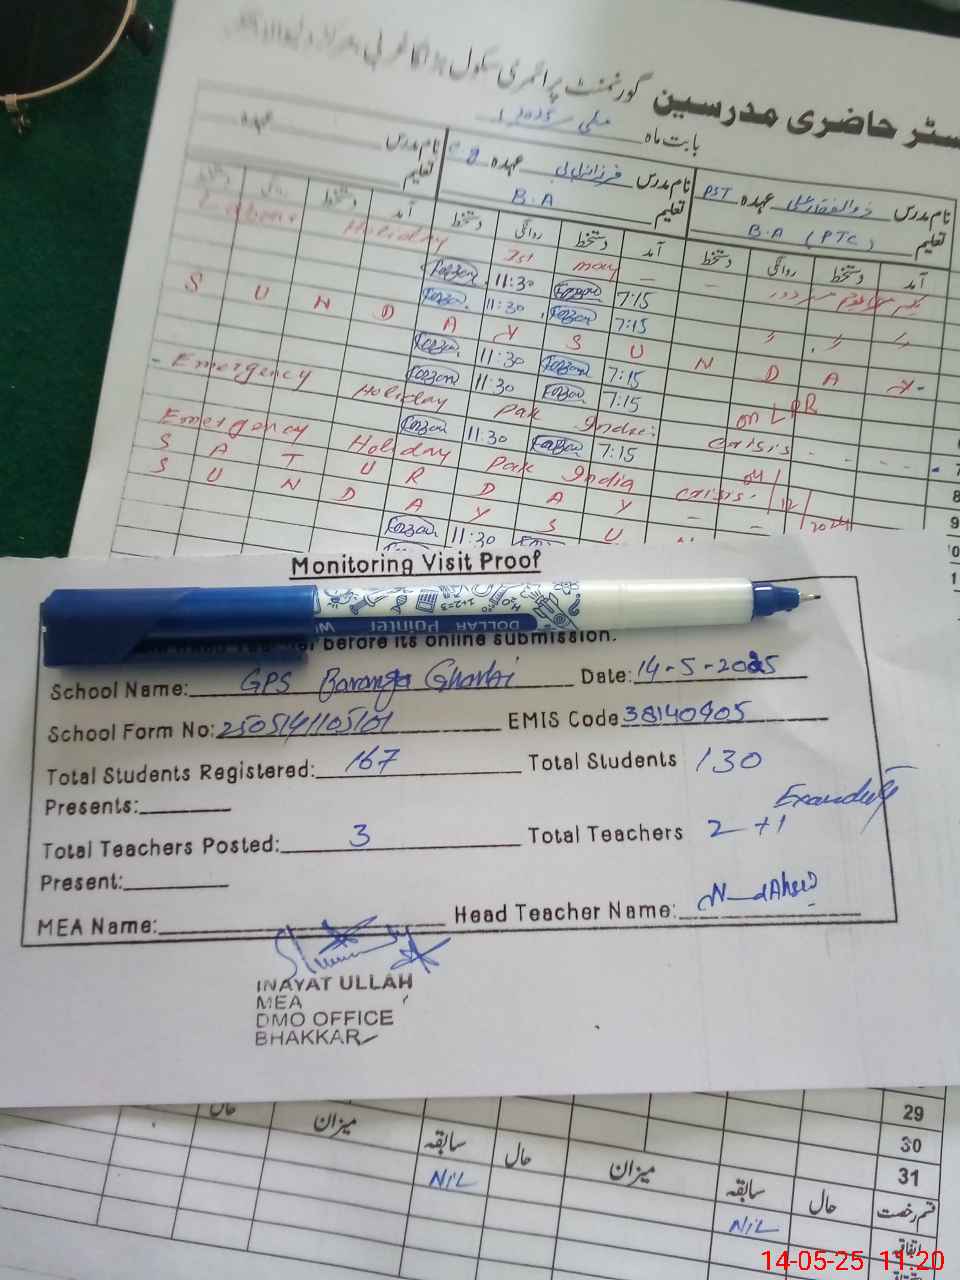 گورنمنٹ پرائمری سکول
سٹر حاضری مدرسین
بابت ماہ مئی 2025
نام مدرس عہدہ
تعلیم
نام مدرس فرزانہ بی بی عہدہ
تعلیم B.A
نام مدرس ذوالفقار علی عہدہ PST
تعلیم B.A (PTC)
آمد دستخط روانگی دستخط آمد دستخط روانگی دستخط آمد
Labour Holiday 1st may
11:30 7:15
11:30 7:15
S U N D A Y S U N D A Y
11:30 7:15
11:30 7:15
Emergency Holiday Pak India crisis
on LPR
11:30 7:15
Emergency Holiday Pak India crisis
04/12/2024
S A T U R D A Y
S U N D A Y S U
11:30
8
9
Monitoring Visit Proof
DOLLAR Pointer
before its online submission.
School Name: GPS Baranga Gharbi Date: 14-5-2025
School Form No: 2505141105101 EMIS Code 38140405
Total Students Registered: 167 Total Students 130
Presents:
Total Teachers Posted: 3 Total Teachers 2+1
Present:
MEA Name: Head Teacher Name:
INAYAT ULLAH
MEA
DMO OFFICE
BHAKKAR
29
30
31
حال میزان سابقہ حال میزان سابقہ حال قسم رخصت
Nil Nil اتفاقیہ
14-05-25 11:20